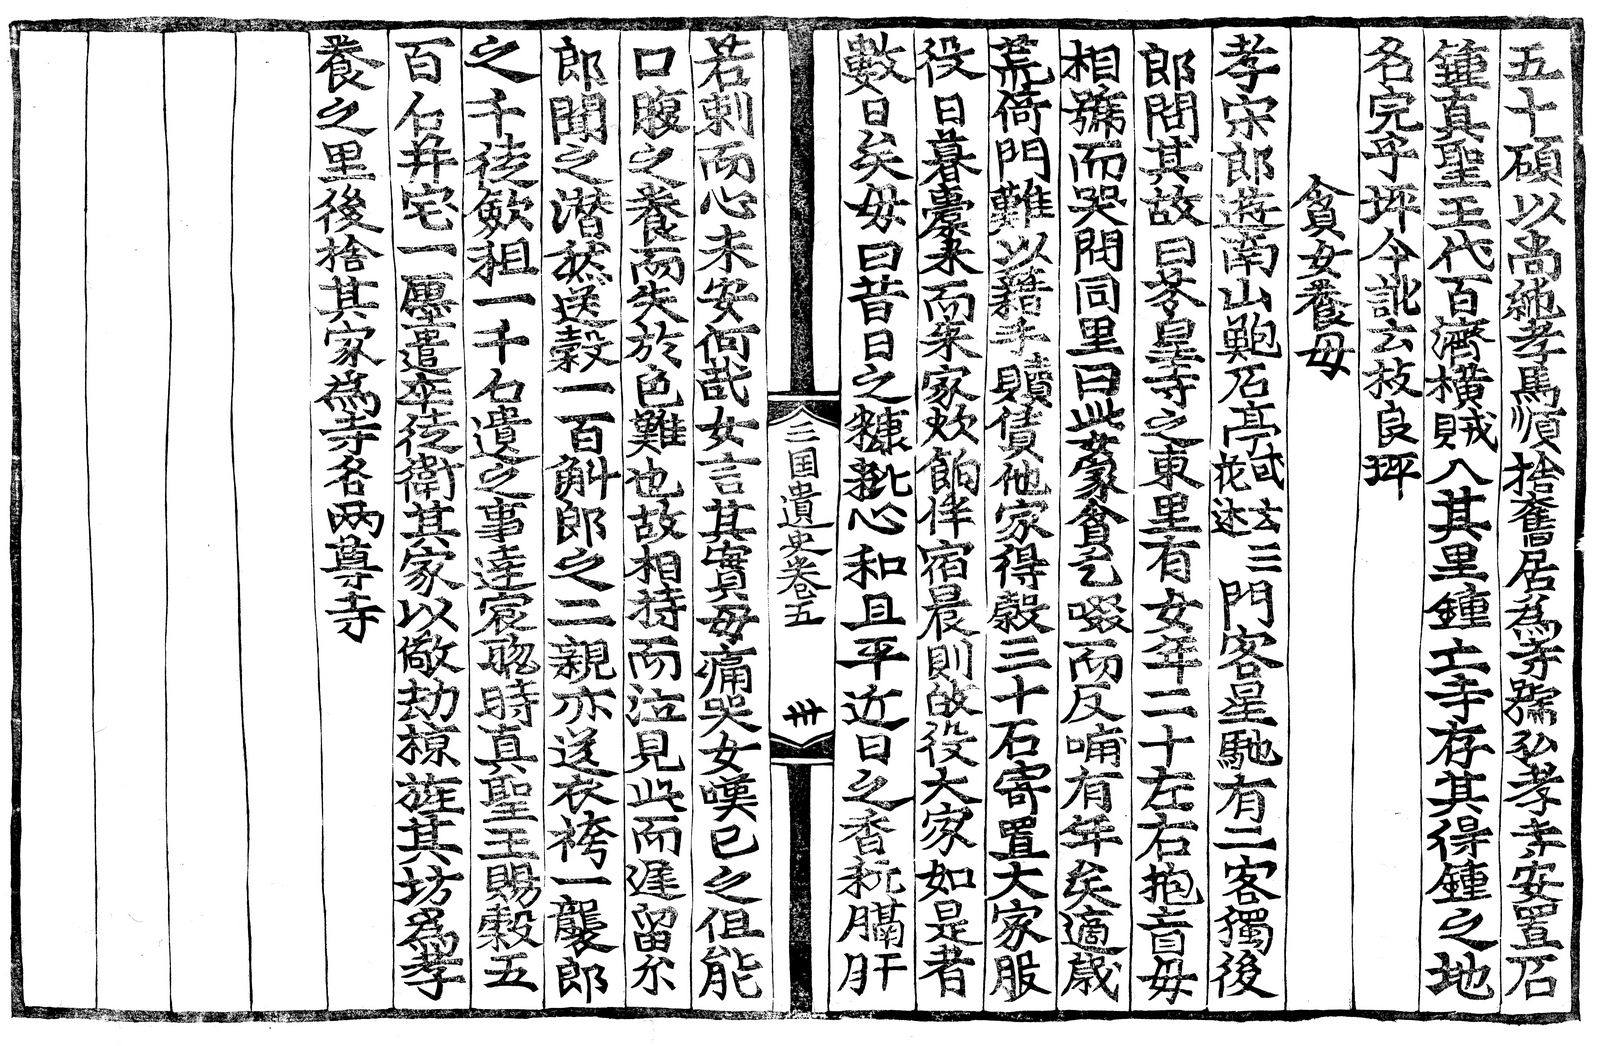 五十碩以尚純孝馬順捨舊居為寺號弘孝寺安置石
鍾真聖王代百濟橫賊入其里鍾亡寺存其得鍾之地
名完乎坪今訛云枝良坪
貧女養母
孝宗郎遊南山鮑石亭或云三花述門客星馳有二客獨後
郎問其故曰芬皇寺之東里有女年二十左右抱盲母
相號而哭問同里曰此女家貧乞啜而反哺有年矣適歲
荒倚門難以藉手贖賃他家得穀三十石寄置大家服
役日暮橐米而來家炊餉伴宿晨則故役大家如是者
數日矣母曰昔日之糠粃心和且平近日之香秔膈肝
若刺而心未安何哉女言其實母痛哭女嘆已之但能
口腹之養而失於色難也故相持而泣見此而遲留尒
郎聞之潜然送穀一百斛郎之二親亦送衣袴一襲郎
之千徒歛租一千石遺之事達宸聰時真聖王賜穀五
百石并宅一廛遣卒徒衛其家以儆劫掠旌其坊為孝
養之里後捨其家為寺名兩尊寺
三国遺史卷五
卅